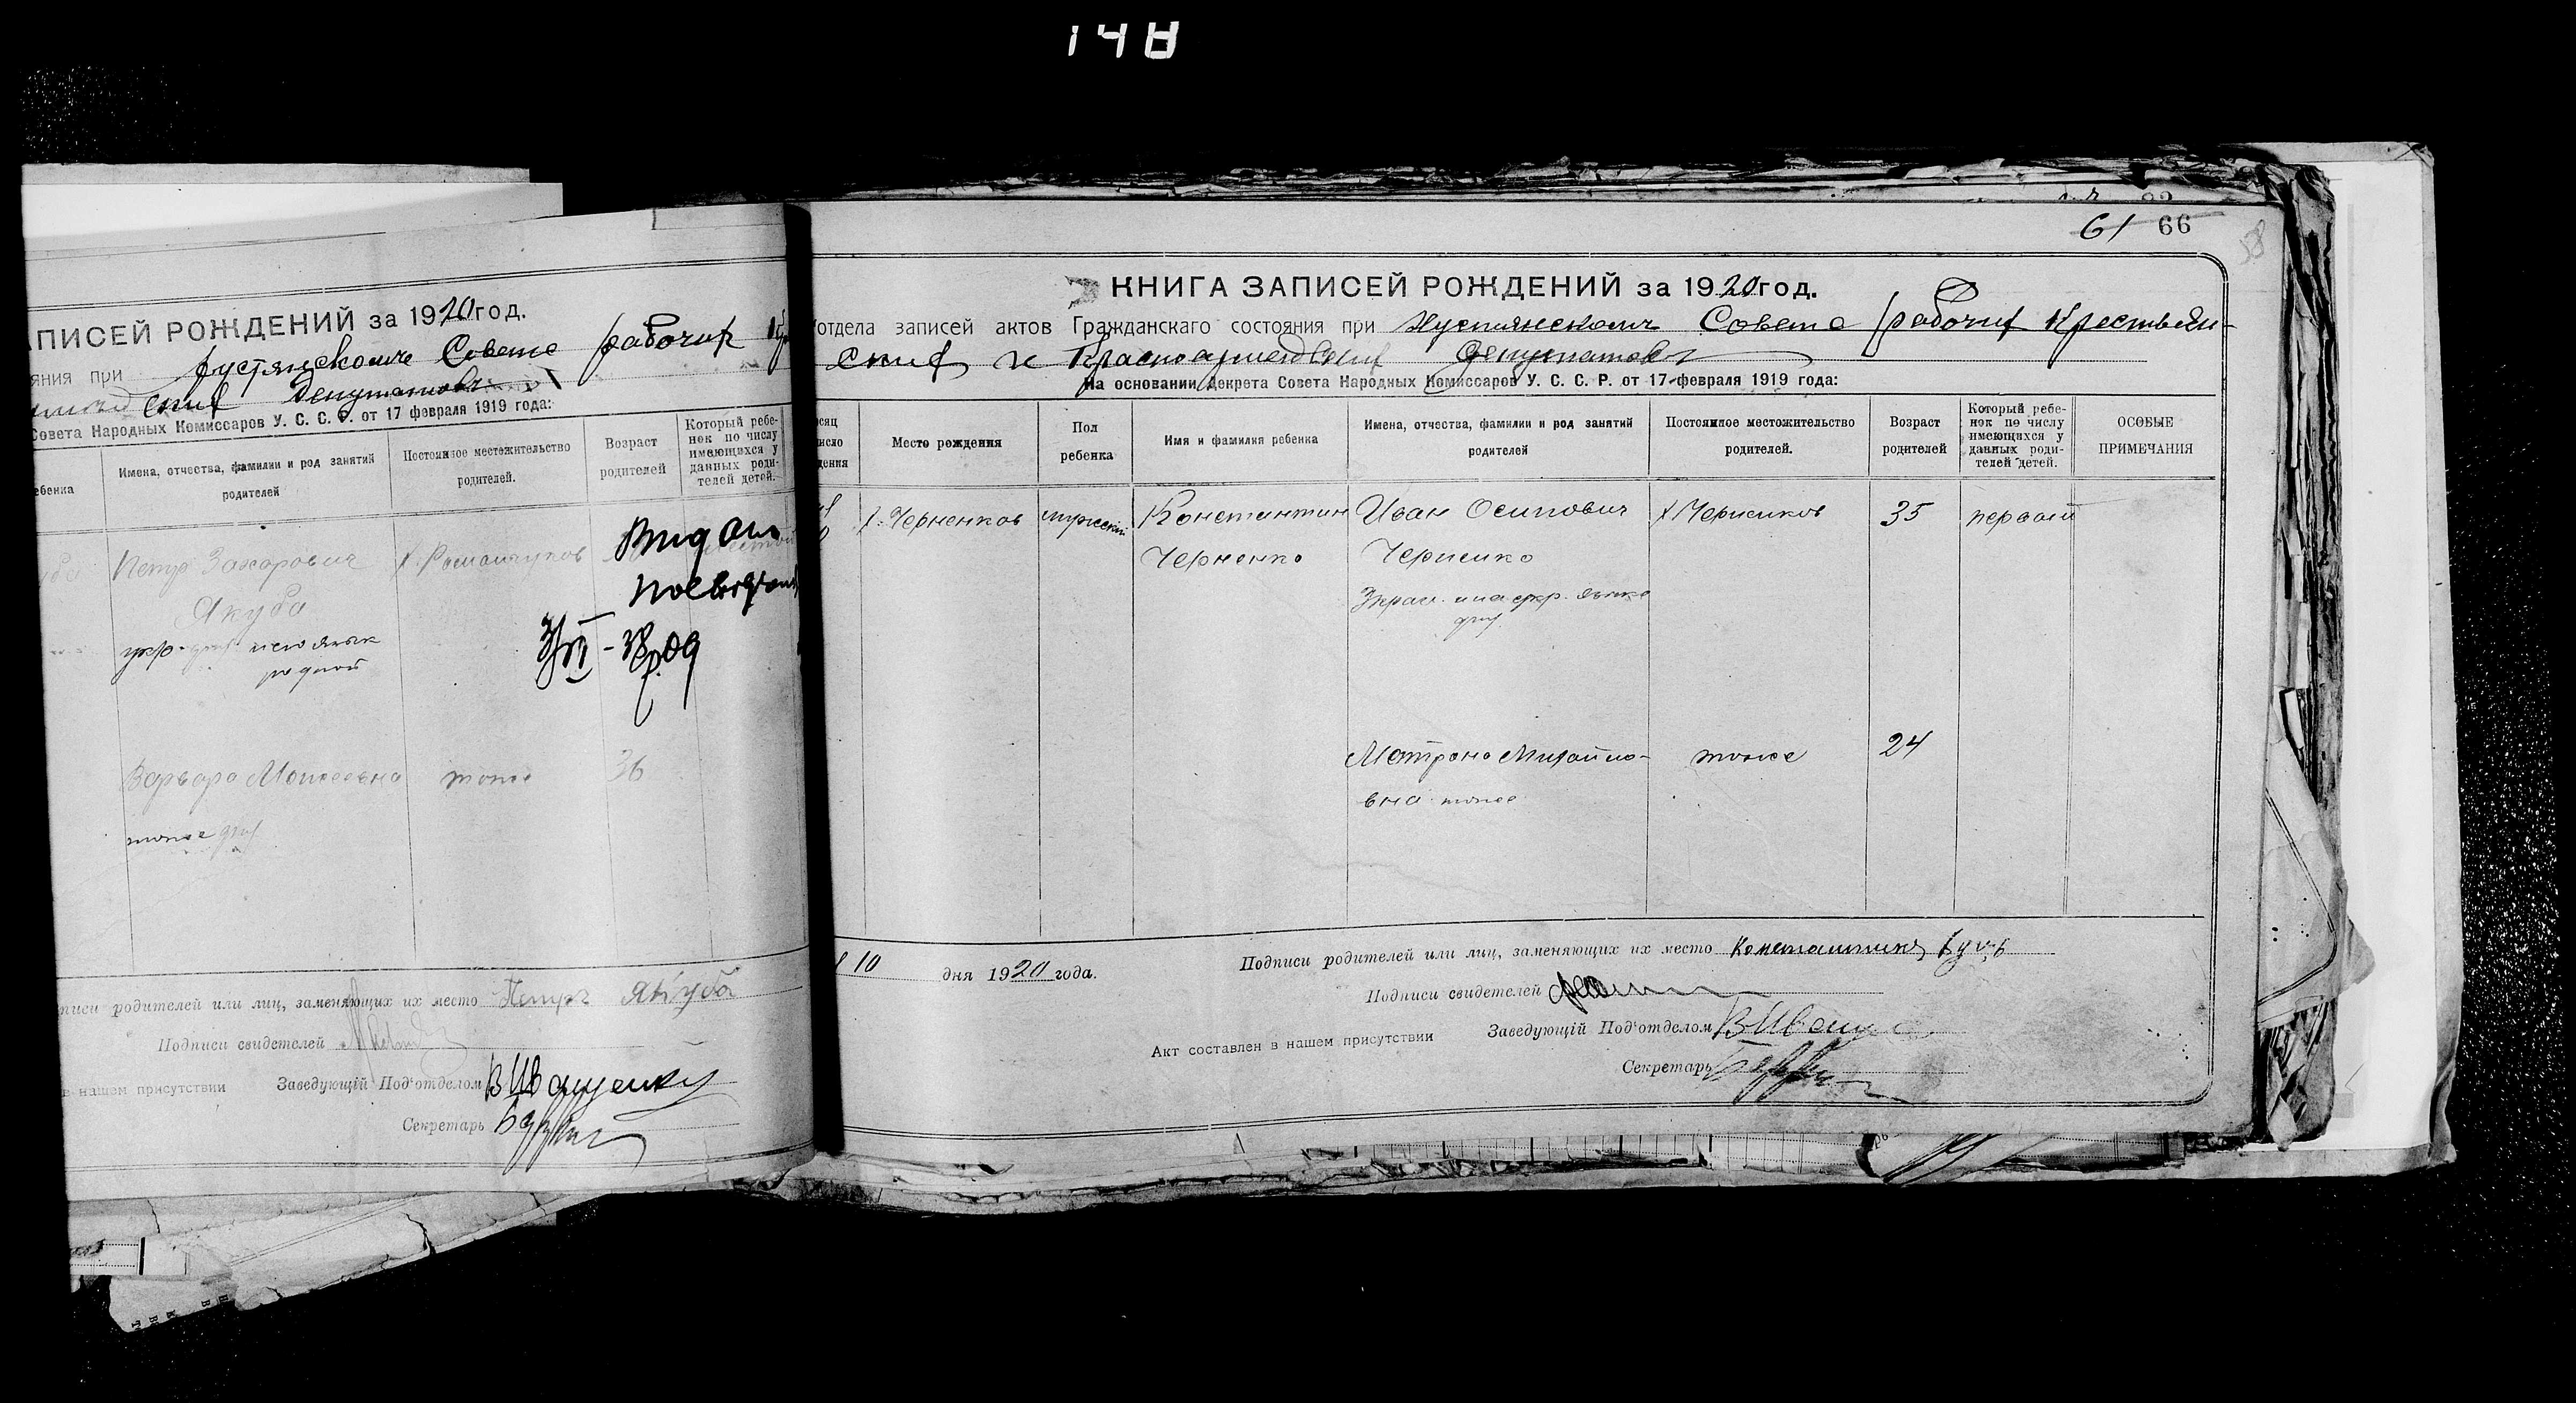 148
АПИСЕЙ РОЖДЕНИЙ за 1920 год.
яния при Хустянскомъ Совете рабочих
ских Депутатовъ
Совета Народных Комиссаров У. С. С. Р. от 17 февраля 1919 года:
ебенка
Имена, отчества, фамилии и род занятий
родителей
Постоянное местожительство
родителей.
Возраст
родителей
Который ребе-
нок по числу
имеющихся у
данных роди-
телей детей.
Петр Захарович
Якуба
укр.
родной
х. Романчуков
Видан
Варвара Моисеевна
тоже
36
тоже
писи родителей или лиц, заменяющих их место Петръ Якуба
Подписи свидетелей
в нашем присутствии
Заведующій Под'отделом В Иващенко
Секретарь
61 66
58
КНИГА ЗАПИСЕЙ РОЖДЕНИЙ за 1920 год.
отдела записей актов Гражданскаго состояния при Хустянскомъ Совете рабочих Крестьян-
ских и Красноармейских Депутатовъ
На основании Декрета Совета Народных Комиссаров У. С. С. Р. от 17 февраля 1919 года:
сяц
число
дения
Место рождения
Пол
ребенка
Имя и фамилия ребенка
Имена, отчества, фамилии и род занятий
родителей
Постоянное местожительство
родителей.
Возраст
родителей
Который ребе-
нок по числу
имеющихся у
данных роди-
телей детей.
ОСОБЫЕ
ПРИМЕЧАНИЯ
х. Черненков
мужской
Константин
Черненко
Иван Осипович
Черненко
х Черненков
35
первый
Матрона Михайло-
вна тоже
тоже
24
10 дня 1920 года.
Подписи родителей или лиц, заменяющих их место Константинъ
Подписи свидетелей
Акт составлен в нашем присутствии
Заведующій Под'отделом В Иващ
Секретарь